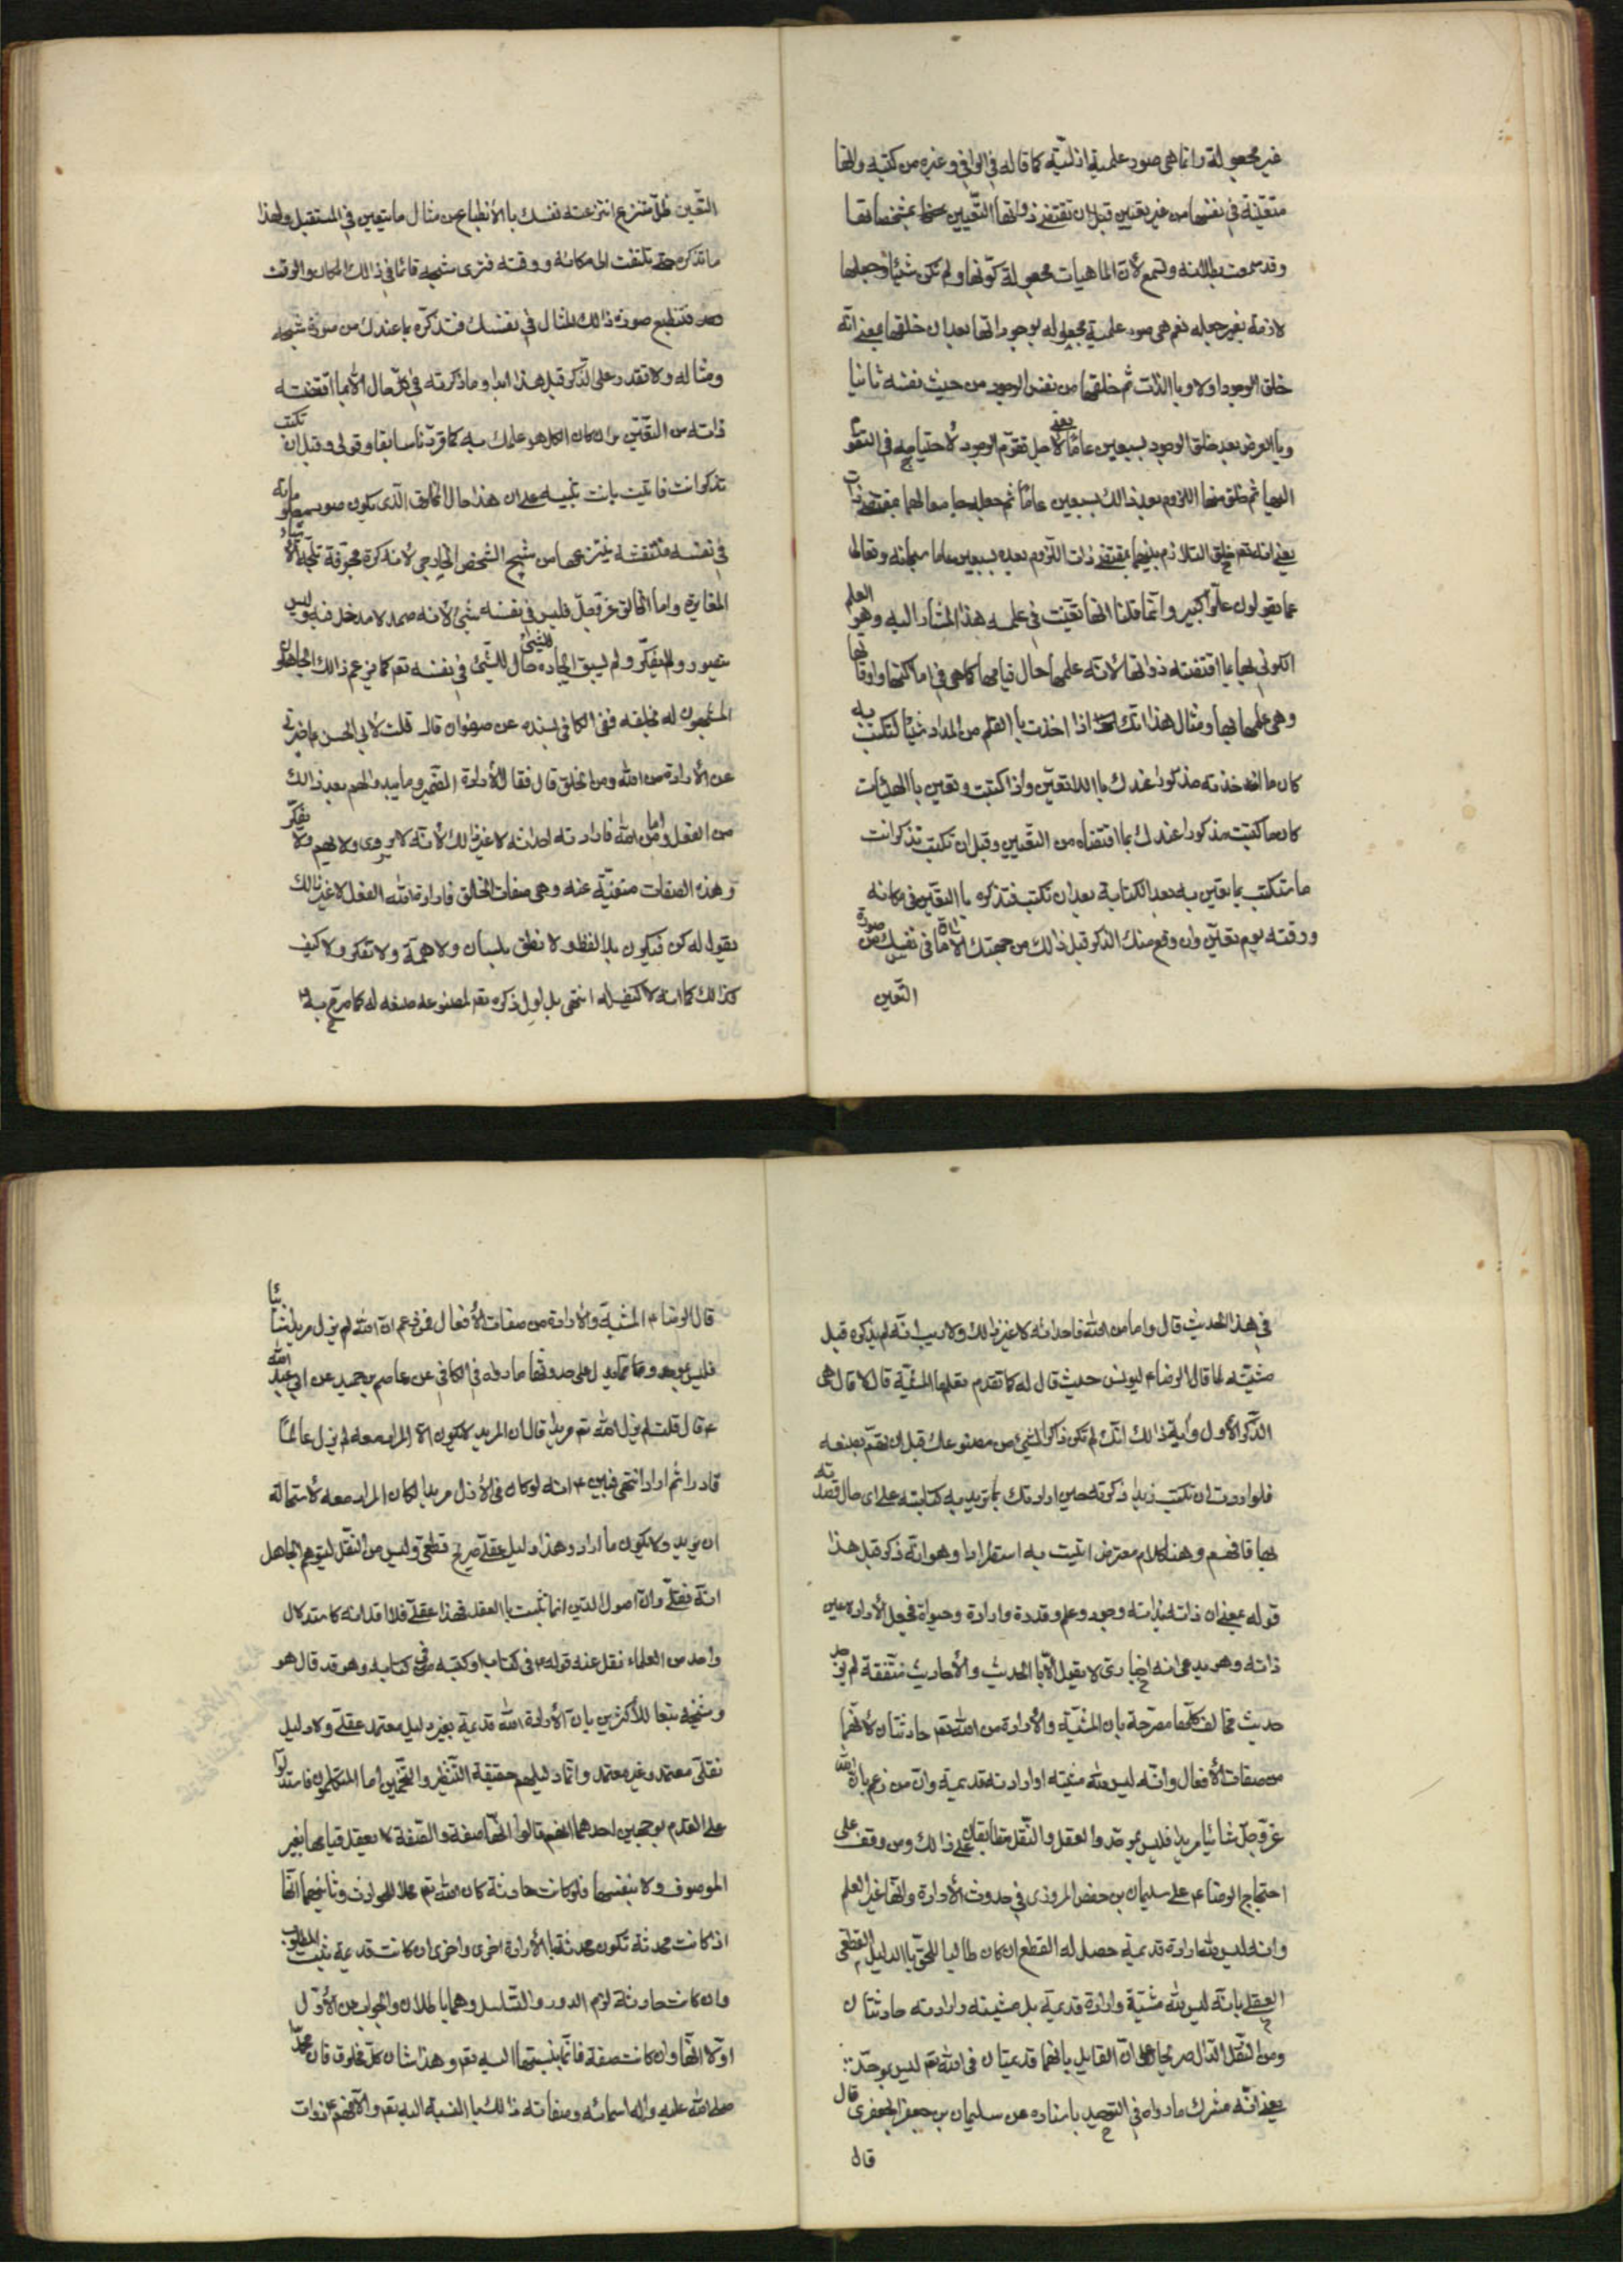 غير مجعولة وانما هى صور علمية ازلية كما قاله فى الوافى وغيره من كتبه وانها
متعينة فى نفسها من غير تعيين قبل ان تقتضى ذواتها التعيين بمشخصاتها
وقد سمعت بطلانه وتسمع لأن الماهيات مجعولة كونها ولم تكن شيئا وجعلها
لازمة بغير جعله نعم هى صور علمية مجعوله بوجوداتها بعد ان خلقها بمعنى انّه
خلق الوجود اولا وبالذات ثم خلقها من نفس الوجود من حيث نفسه ثانيا
وبالعرض بعد خلق الوجود بسبعين عاما يعنى لاجل تقوم الوجود لأحتياجه فى التقوم
اليها ثم خلق منها اللازم بعد ذالك بسبعين عاما ثم جعلها معا لهما بمقتضى ذات
يعنى انه تعم خلق التلازم بينهما بمقتضى ذات اللزوم بعده بسبعين عاما سبحانه وتعالى
عما يقولون علوّا كبيرا وانّما قلنا انها تعيّنت فى علمه هذا المشار اليه وهو العلم
الكونى لها بما اقتضته ذواتها لأنه علمها حال قيامها كما هى فى اماكنها واوقاتها
وهى علمها بها ومثال هذا انك اذا اخذت باالقلم من المداد شيئا لتكتب به
كان ما اخذته مذكورا عندك باللاتعيّن واذا كتبت وتعين باالهيئات
كان ما كتبت مذكورا عندك بما اقتضاه من التعيين وقبل ان تكتب تذكر انت
ما ستكتب بما يتعين به بعد الكتابة بعد ان تكتب فتذكره باالتعيّن فى مكانه
ووقته يوم تعيّن وان وقع منك الذكر قبل ذالك من جهتك لأن ما فى نفسك من صورة
التّعين
التّعين ظلّ منتزع انتزعته نفسك باالأنطباع من مثال ما يتعين فى المستقبل ولهذا
ما تذكره حتى تلتفت الى مكانه ووقته فترى شبحه قائما فى ذالك المكان والوقت
فتنطبع صورة ذالك المثال فى نفسك فتذكّره بما عندك من صورة شبحه
ومثاله ولا تقدر على الذكر قبل هذا ابدا وما ذكرته فى كل حال الا بما اقتضته
ذاته من التعيّن وان كان الكل هو علمك به كما قرّرنا سابقا وقولى وقبل ان تكتب
تذكر انت فاتيت بانت تنبيه على ان هذا حال المخلوق الذى يكون صور معلوماته
فى نفسه منتقشه ينتزعها من شبح الشخص الخارجى لأنه كرة مجوّفة تلجّه الأشياء
المغايرة واما الخالق عزّ وجلّ فليس فى نفسه شىئ لأنه صمد لا مدخل فيه وليس
بتصور ولا بتفكّر ولم يسبق ايجاده للشيئ حال للشيئ فى نفسه تعم كما يزعم ذالك الجاهلون
المشبهون له بخلقه ففى الكافى بسنده عن صفوان قال قلت لأبى الحسن ع اخبرنى
عن الأرادة من اللّه ومن الخلق قال فقال الأرادة الضمير وما يبدو لهم بعد ذالك
من الفعل واما من اللّه فارادته احداثه لا غير ذالك لأنّه لا يروى ولا يهم ولا يتفكّر
وهذه الصفات منفيّة عنه وهى صفات الخلق فارادة اللّه الفعل لا غير ذالك
يقول له كن فيكون بلا لفظ ولا نطق بلسان ولا همّة ولا تفكر ولا كيف
كذالك كما انه لا كيف له انتهى بل اول ذكره تعم لمصنوعه صنعه له كما صرّح به ع
فى هذا الحديث قال واما من اللّه فاحداثه لا غير ذالك ولا ريب انّه لم يذكره قبل
مشيّته لما قال الرضا ع ليونس حيث قال له كما تقدم تعلم ما المشيّة قال لا قال هى
الذّكر الأول وأية ذالك انّك لم تكن ذاكرا لشيئ من مصنوعك قبل ان تهتم بصنعه
فلو اردت ان تكتب زيدا ذكرته حين ارادتك بما تريد به كتابته على اى حال قصدته
بها فافهم وهنا كلام معترض اتيت به استطرادا وهو انّه ذكر قبل هذا
قوله بمعنى ان ذاته بذاته وجود وعلم وقدرة وارادة وحيواة فجعل الأرادة عين
ذاته وهو يدعى انه اخبارىّ لا يقبل الّا باالحديث والأحاديث متّفقة لم يوجد
حديث مخالف كلّها مصرّحة بان المشيّة والأرادة من اللّه تعم حادثتان لأنهما
من صفات الأفعال وانّه ليس للّه مشيّته او ارادته قديمية وانّ من زعم بان اللّه
عزّ وجلّ شائيا مريدا فليس بموحّد والعقل والنّقل متطابقان على ذالك ومن وقف على
احتجاج الرضا ع على سليمان بن حفص المروزى فى حدوث الأرادة وانها غير العلم
وانه ليس للّه ارادة قديمية حصل له القطع ان كان طالبا للحق باالدليل القطعى
العقلى بانّه ليس للّه مشيّة وارادة قديمية بل مشيته وارادته حادثتان
ومن النّقل الدّال صريحا على انّ القايل بانهما قديمتان فى اللّه تعم ليس بموحّد
يعنى انّه مشرك ما رواه فى التوحيد باسناده عن سليمان بن جعفر الجعفرى قال
قال
قال الرضا ع المشيّة والأرادة من صفات الأفعال فمن زعم انّ اللّه لم يزل مريدا شائيا
فليس بموحد ومما يدل على حدوثها ما رواه فى الكافى عن عاصم بن حميد عن ابى عبد اللّه
ع قال قلت لم يزل اللّه تعم مريدا قال ان المريد لا يكون الّا المراد معه لم يزل عالما
قادرا ثم اراد انتهى فبيّن ع انه لو كان فى الأزل مريدا لكان المراد معه لأستحالة
ان يريد ولا يكون ما اراد وهذا دليل عقلىّ صريح قطعىّ وليس من النّقل ليتوهم الجاهل
انّه نقلىّ وانّ اصول الدّين انما تثبت باالعقل فهذا عقلىّ فلا اقل انه كاستدلال
واحد من العلماء نقل عنه قوله ع فى كتاب او كتبه هو فى كتابه وهو قد قال هو
وشيخه تبعا للأكثرين بانّ الأرادة اللّه قديمية بغير دليل معتمد عقلىّ ولا دليل
نقلىّ معتمد وغير معتمد وانّما دليلهم حقيقة التّنظير والتّخمين اما المتكلمون فاستدلوا
على القدم بوجهين احدهما انهم قالوا انّها صفة والصّفة لا يعقل قيامها بغير
الموصوف ولا بنفسها فلو كانت حادثة كان اللّه تعم محلا للحوادث وثانيهما انّها
اذا كانت محدثة تكون محدثة باالأرادة اخرى واخرى ان كانت قديمية ثبت المطلوب
وان كانت حادثة لزم الدور والتّسلسل وهما باطلان والجواب عن الأوّل
اوّلا انّها وان كانت صفة فانّما بنسبتها اليه تعم وهذا شان كلّ مخلوق فان محمّدا
صلى اللّه عليه واله اسمائه وصفاته ذالك باالنسبة اليه تعم والّا فهم ع ذوات